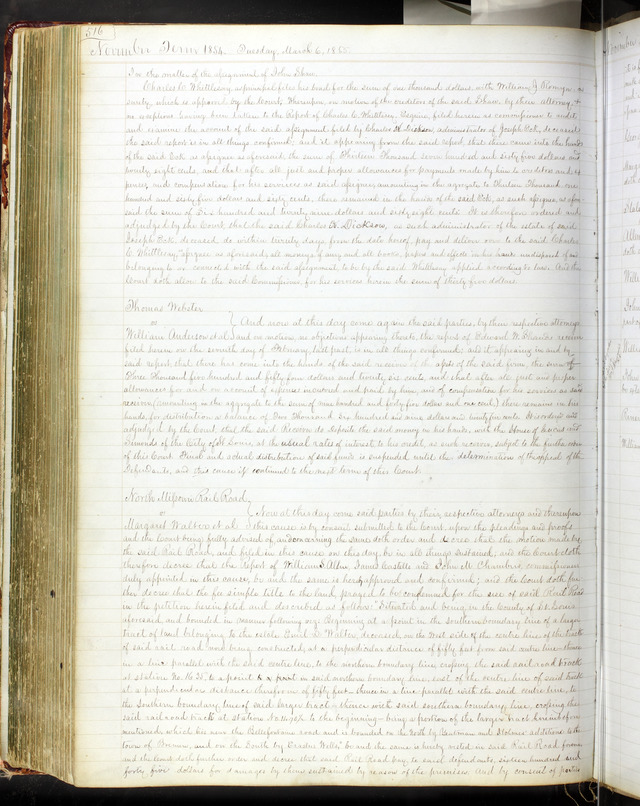 516
November Term 1854. Tuesday, March 6, 1855.
In the matter of the assignment of John Shaw.
Charles C. Whittlesey, assignee, files his bond for the sum of six thousand dollars, with William J. Romyn as
surety, which is approved by the Court. Thereupon, on motion of the creditors of the said Shaw by their attorney, &
no exceptions having been taken to the Report of Charles C. Whittlesey, Esquire, filed herein as commissioner to audit
and examine the account of the said assignment filed by Charles K. Dickson, administrator of Joseph Cok, deceased
the said report is in all things confirmed; and it appearing from the said report that there came into the hands
of the said Cok as assignee as aforesaid, the sum of Thirteen Thousand seven hundred and sixty five dollars and
twenty eight cents, and that after all just and proper allowances for payments made by him to creditors and
and compensation for his services as said assignee, amounting in the aggregate to thirteen Thousand one
hundred and sixty five dollars and sixty cents, there remained in the hands of the said Cok, as such assignee as afore
said the sum of Six hundred and twenty nine dollars and sixty eight cents. It is therefore ordered and
adjudged by the Court, that the said Charles K. Dickson, as such administrator of the estate of said
Joseph Cok, deceased, do within twenty days from the date hereof, pay and deliver over to the said Charles
C. Whittlesey, assignee as aforesaid, all moneys if any and all books, papers and effects in his hands undisposed of and
belonging to or connected with the said assignment, to be by the said Whittlesey applied according to law. And the
Court doth allow to the said Commissioner, for his services herein the sum of thirty five dollars.
Thomas Webster
vs } And now at this day come again the said parties, by their respective attorneys
William Anderson et al } and on motion, no objections appearing thereto, the report of Edward receiver
filed herein on the seventh day of February, last past, is in all things confirmed: and it appearing in and by
said report that there has come into the hands of the said receiver of the assets of the said firm, the sum of
Three Thousand five hundred and fifty four dollars and twenty six cents, and that after all just and proper
allowances for and on account of expenses incurred and paid by him, and of compensation for his services as said
receiver (amounting in the aggregate to the sum of nine hundred and forty four dollars and one cent) there remains in his
hands for distribution a balance of Two Thousand six hundred and nine dollars and twenty five cents. It is ordered and
adjudged by the Court, that the said Receiver do deposite the said money in his hands, with the House of Lucas and
Simonds of the City of St Louis at the usual rates of interest to his credit, as such receiver, subject to the further order
of this Court. Final and actual distribution of said funds is suspended, until the determination of the appeal of the
Defendants, and this cause is continued to the next term of this Court.
North Missouri Rail Road
vs } Now at this day come said parties by their respective attorneys and thereupon
Margaret Walter et al } this cause is by consent submitted to the Court, upon the pleadings and proofs
and the Court being fully advised of and concerning the same doth order and decree that the motion made by
the said Rail Road, and filed in this cause on this day, be in all things sustained, and the Court doth
therefore decree that the report of William S. Allen, James Castello and John M. Chambers, commissioners
duly appointed in this cause, be and the same is hereby approved and confirmed; and the Court doth fur
ther decree that the fee simple title to the land prayed to be condemned for the use of said Rail Road
in the petition herein filed and described as follows: "Situated and being in the County of St Louis
aforesaid, and bounded in manner following viz: Beginning at a point in the southern boundary line of a larger
tract of land belonging to the estate of Walter, deceased, on the West side of the centre line of the track
of said rail road now being constructed, at a perpendicular distance of fifty feet from said centre line, thence
in a line parallel with the said centre line, to the northern boundary line crossing the said rail road track
at station No. to a point & a point in said northern boundary line, east of the centre line of said track
at a perpendicular distance therefrom of fifty feet, thence in a line parallel with the said centre line, to
the Southern boundary line of said larger tract & thence with said southern boundary line, crossing the
said rail road track at station No. to the beginning – being a portion of the larger tract hereinbefore
mentioned, which lies near the Bellefontaine road and is bounded on the North by and additions to the
town of Bremen, and on the South by " be and the same is hereby vested in said Rail Road forever
and the Court doth further order and decree that said Rail Road pay, to said defendants, sixteen hundred and
forty five dollars for damages by them sustained by reason of the premises. And by consent of parties